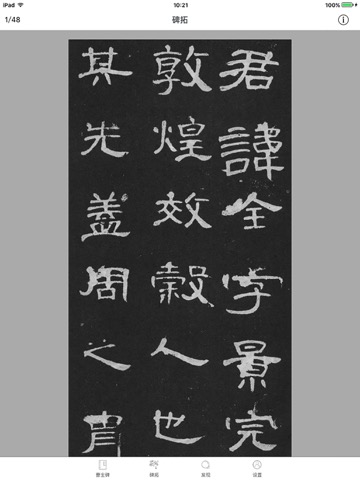 iPad 10:21 100%
1/48 碑拓
君諱全字景完
敦煌效穀人也
其先蓋周之胄
曹全碑 碑拓 发现 设置